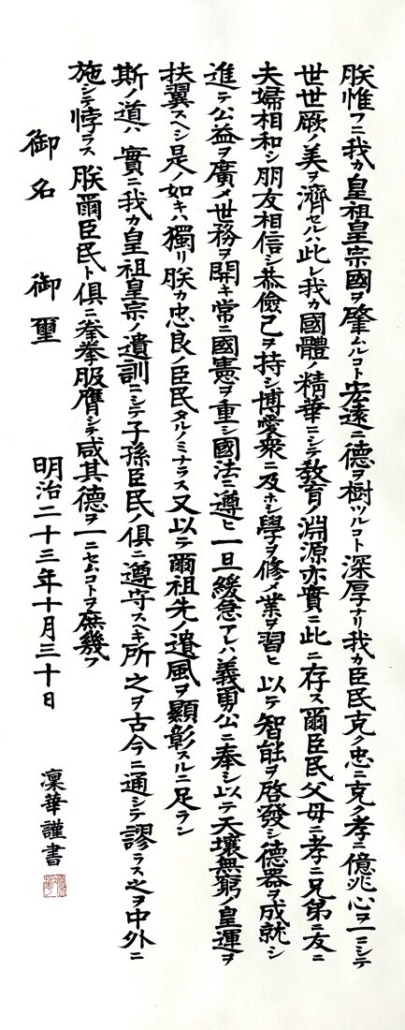 朕惟フニ我カ皇祖皇宗國ヲ肇ムルコト宏遠ニ德ヲ樹ツルコト深厚ナリ我カ臣民克ク忠ニ克ク孝ニ億兆心ヲ一ニシテ
世世厥ノ美ヲ濟セルハ此レ我カ國體ノ精華ニシテ教育ノ淵源亦實ニ此ニ存ス爾臣民父母ニ孝ニ兄弟ニ友ニ
夫婦相和シ朋友相信シ恭儉己ヲ持シ博愛衆ニ及ホシ學ヲ修メ業ヲ習ヒ以テ智能ヲ啓發シ德器ヲ成就シ
進テ公益ヲ廣メ世務ヲ開キ常ニ國憲ヲ重シ國法ニ遵ヒ一旦緩急アレハ義勇公ニ奉シ以テ天壤無窮ノ皇運ヲ
扶翼スヘシ是ノ如キハ獨リ朕カ忠良ノ臣民タルノミナラス又以テ爾祖先ノ遺風ヲ顯彰スルニ足ラン
斯ノ道ハ實ニ我カ皇祖皇宗ノ遺訓ニシテ子孫臣民ノ俱ニ遵守スヘキ所之ヲ古今ニ通シテ謬ラス之ヲ中外ニ
施シテ悖ラス朕爾臣民ト俱ニ拳拳服膺シテ咸其德ヲ一ニセムコトヲ庶幾フ
明治二十三年十月三十日
御名 御璽
凜華謹書